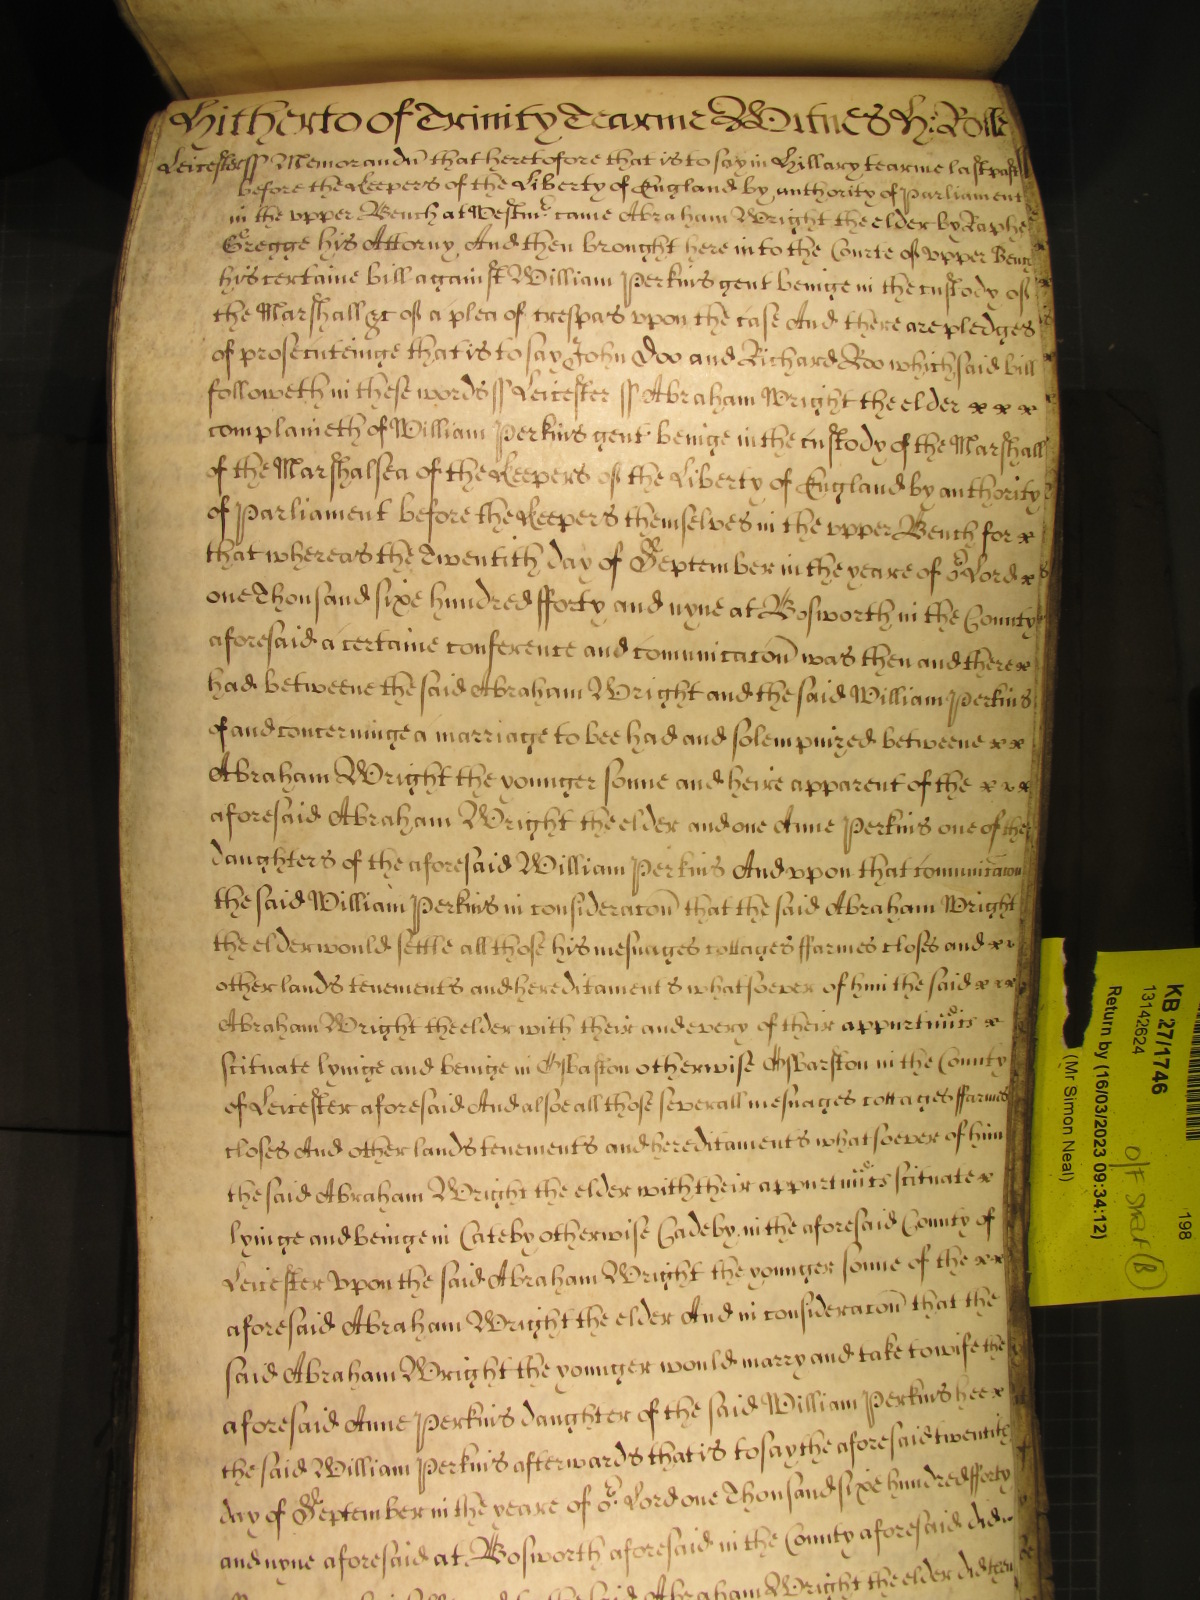 Hitherto of Trinity Tearme Witnes H: Rolle
Leicester ss Memorandū that heretofore that is to say in Hillary tearme last past
before the Keepers of the Liberty of England by authority of Parliament
in the vpper Bench at Westmr came Abraham Wright the elder by Raphe
Gregge his Attorny And then brought here into the Courte of vpper Bench
his certaine bill against William Perkins gent beinge in the custody of
the Marshall &c of a plea of trespas vpon the case And there are pledges
of prosecuteinge that is to say John Doo and Richard Roo which said bill
followeth in these words ss Leicester ss Abraham Wright the elder x x x
complaineth of William Perkins gent beinge in the custody of the Marshall
of the Marshalsea of the Keepers of the Liberty of England by authority
of Parliament before the Keepers themselves in the vpper Bench for x
that whereas the Twentith day of September in the yeare of or Lord x
one Thousand sixe hundred fforty and nyne at Bosworth in the County
aforesaid a certaine conference and comunicacoñ was then and there x
had betweene the said Abraham Wright and the said William Perkins
of and concerninge a marriage to bee had and solempnized betweene x x
Abraham Wright the younger sonne and heire apparent of the x x x
aforesaid Abraham Wright the elder and one Anne Perkins one of the
daughters of the aforesaid William Perkins And vpon that comunicacon
the said William Perkins in consideracoñ that the said Abraham Wright
the elder would settle all those his mesuages cottages ffarmes closes and x x
other lands tenements and hereditaments whatsoever of him the said x x x
Abraham Wright the elder with their and every of their appurtuñts x
scituate lyinge and beinge in Osbaston otherwise Osbarston in the County
of Leicester aforesaid And alsoe all those severall mesuages cottages ffarmes
closes And other lands tenements and hereditaments whatsoever of him
the said Abraham Wright the elder with their appurtuñts scituate x
lyinge and beinge in Cateby otherwise Cadeby in the aforesaid County of
Leicester vpon the said Abraham Wright the younger sonne of the x x
aforesaid Abraham Wright the elder And in consideracoñ that the
said Abraham Wright the younger would marry and take to wife the
aforesaid Anne Perkins daughter of the said William Perkins hee x
the said William Perkins afterwards that is to say the aforesaid twentith
day of September in the yeare of or Lord one Thousand sixe hundred fforty
and nyne aforesaid at Bosworth aforesaid in the County aforesaid did
the said Abraham Wright the elder did then
KB 27/1746
13142624
Return by (16/03/2023 09:34:12)
(Mr Simon Neal)
198